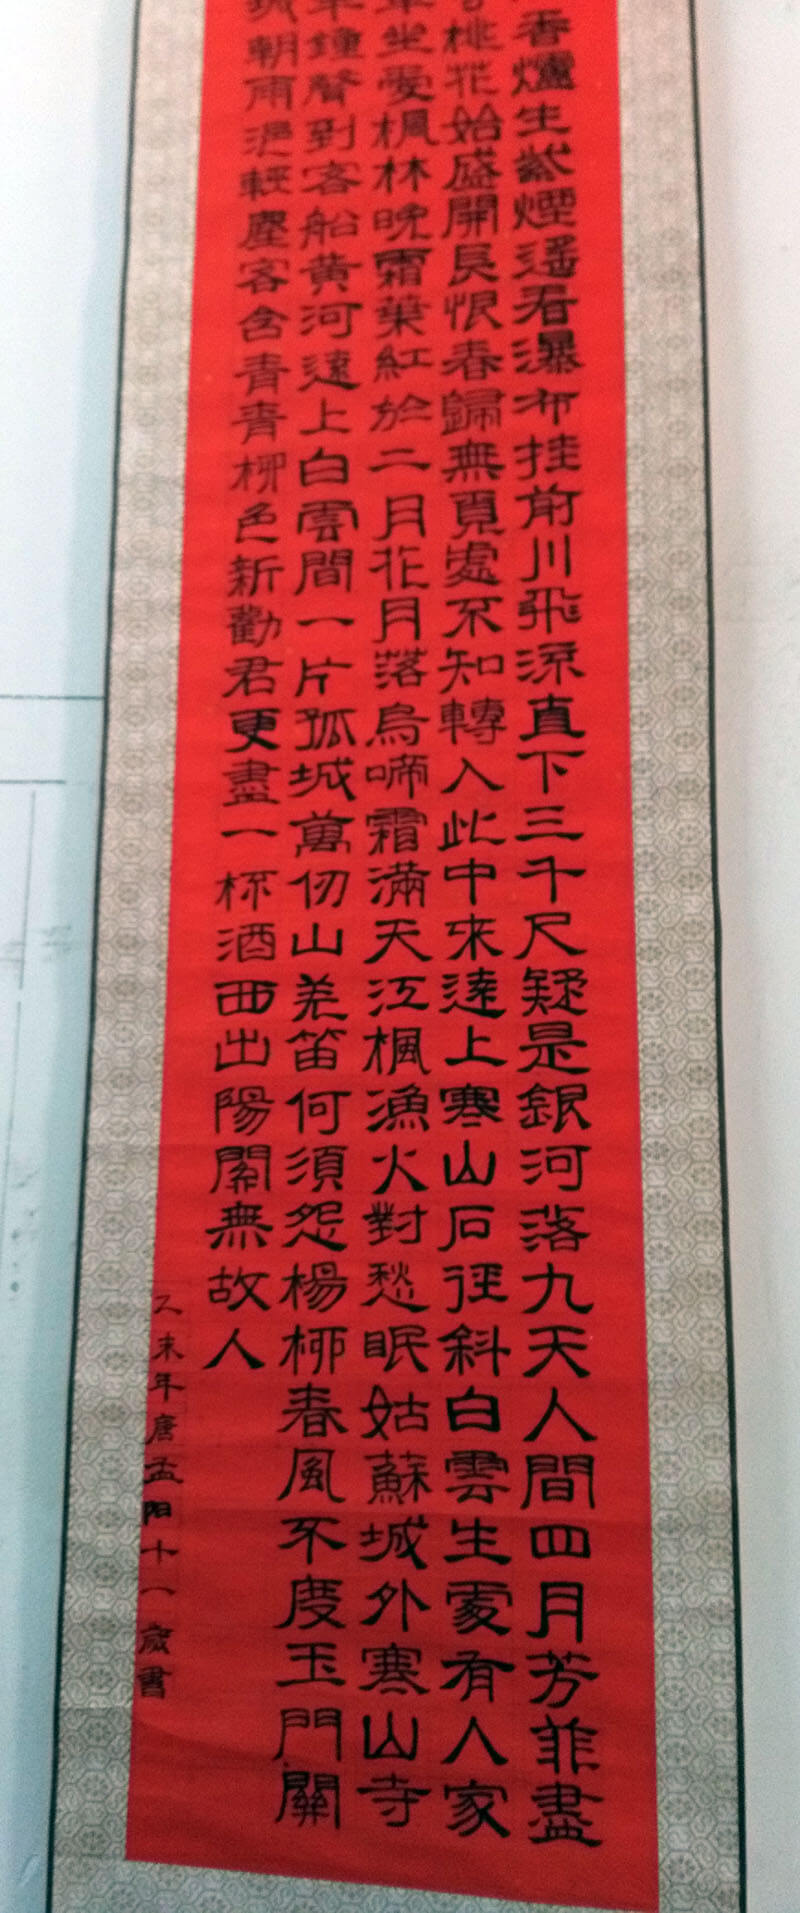 香爐生紫煙遙看瀑布挂前川飛流直下三千尺疑是銀河落九天人間四月芳菲盡
桃花始盛開長恨春歸無覓處不知轉入此中來遠上寒山石徑斜白雲生處有人家
車坐愛楓林晚霜葉紅於二月花月落烏啼霜滿天江楓漁火對愁眠姑蘇城外寒山寺
半鐘聲到客船黃河遠上白雲間一片孤城萬仞山羌笛何須怨楊柳春風不度玉門關
城朝雨浥輕塵客舍青青柳色新勸君更盡一杯酒西出陽關無故人
乙未年唐孟阳十一歲書